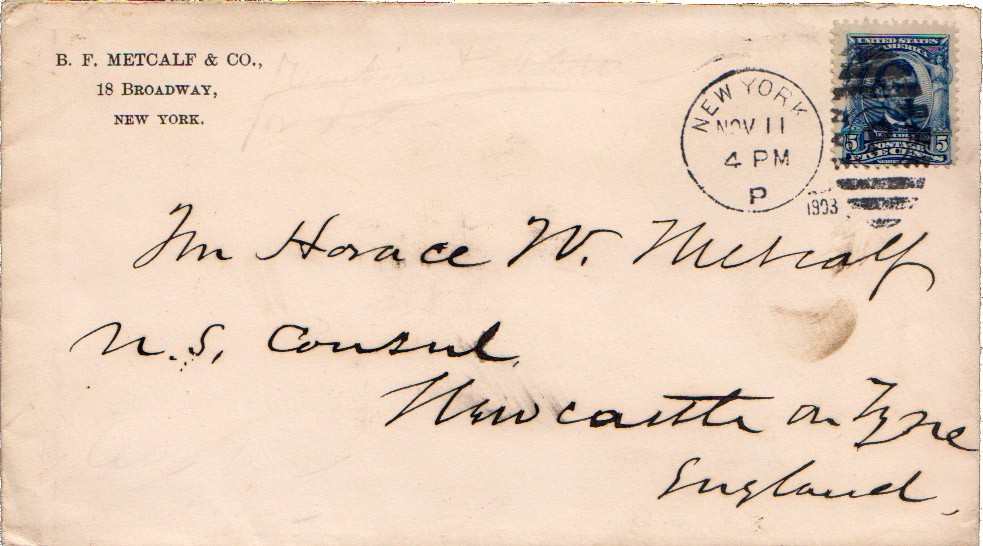 B. F. METCALF & CO.,
18 BROADWAY,
NEW YORK.
NEW YORK
NOV 11
4 PM
P
1903
UNITED STATES
AMERICA
5 5
POSTAGE
FIVE CENTS
Mr Horace W. Metcalf
U.S. Consul,
Newcastle on Tyne
England.